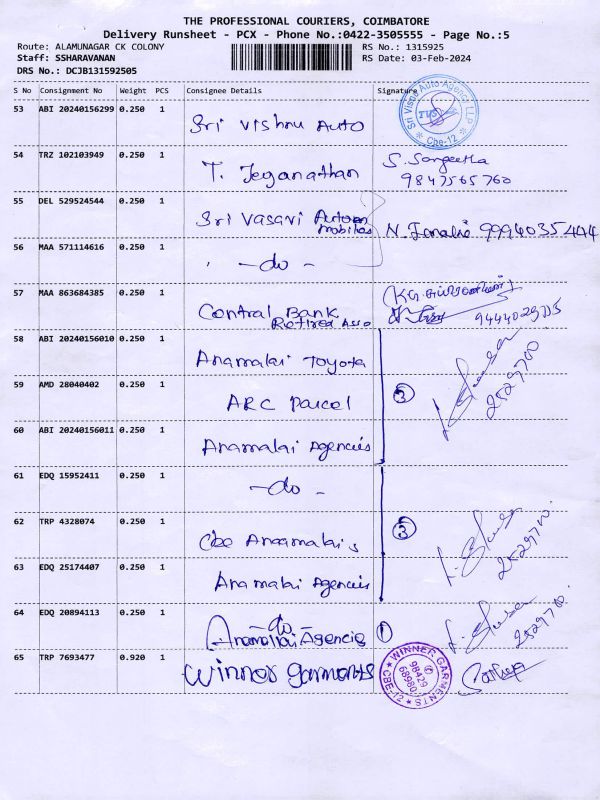 THE PROFESSIONAL COURIERS, COIMBATORE
Delivery Runsheet - PCX - Phone No.:0422-3505555 - Page No.:5
Route: ALAMUNAGAR CK COLONY
RS No.: 1315925
Staff: SSHARAVANAN
RS Date: 03-Feb-2024
DRS No.: DCJB131592505
S No Consignment No Weight PCS Consignee Details Signature
53 ABI 20240156299 0.250 1 Sri Vishnu Auto
Sri Vishnu Auto Agency LLP
TVS
Cbe-12
54 TRZ 102103949 0.250 1 T. Jeganathan S. Sangeetha
9847565760
55 DEL 529524544 0.250 1 Sri Vasavi Auto
mobiles
56 MAA 571114616 0.250 1 - do -
57 MAA 863684385 0.250 1 Central Bank
Retired Asso
58 ABI 20240156010 0.250 1 Anamalai Toyota
59 AMD 28040402 0.250 1 ARC Parcel 3
2529700
60 ABI 20240156011 0.250 1 Anamalai Agencies
61 EDQ 15952411 0.250 1 - do -
62 TRP 4328074 0.250 1 Cbe Anaamalais 3
2529700.
63 EDQ 25174407 0.250 1 Anamalai Agencies
64 EDQ 20894113 0.250 1 - do -
Anamallai Agencies 1
2529700.
65 TRP 7693477 0.920 1 Winner garments
WINNER GARMENTS
98429
68980
CBE-12